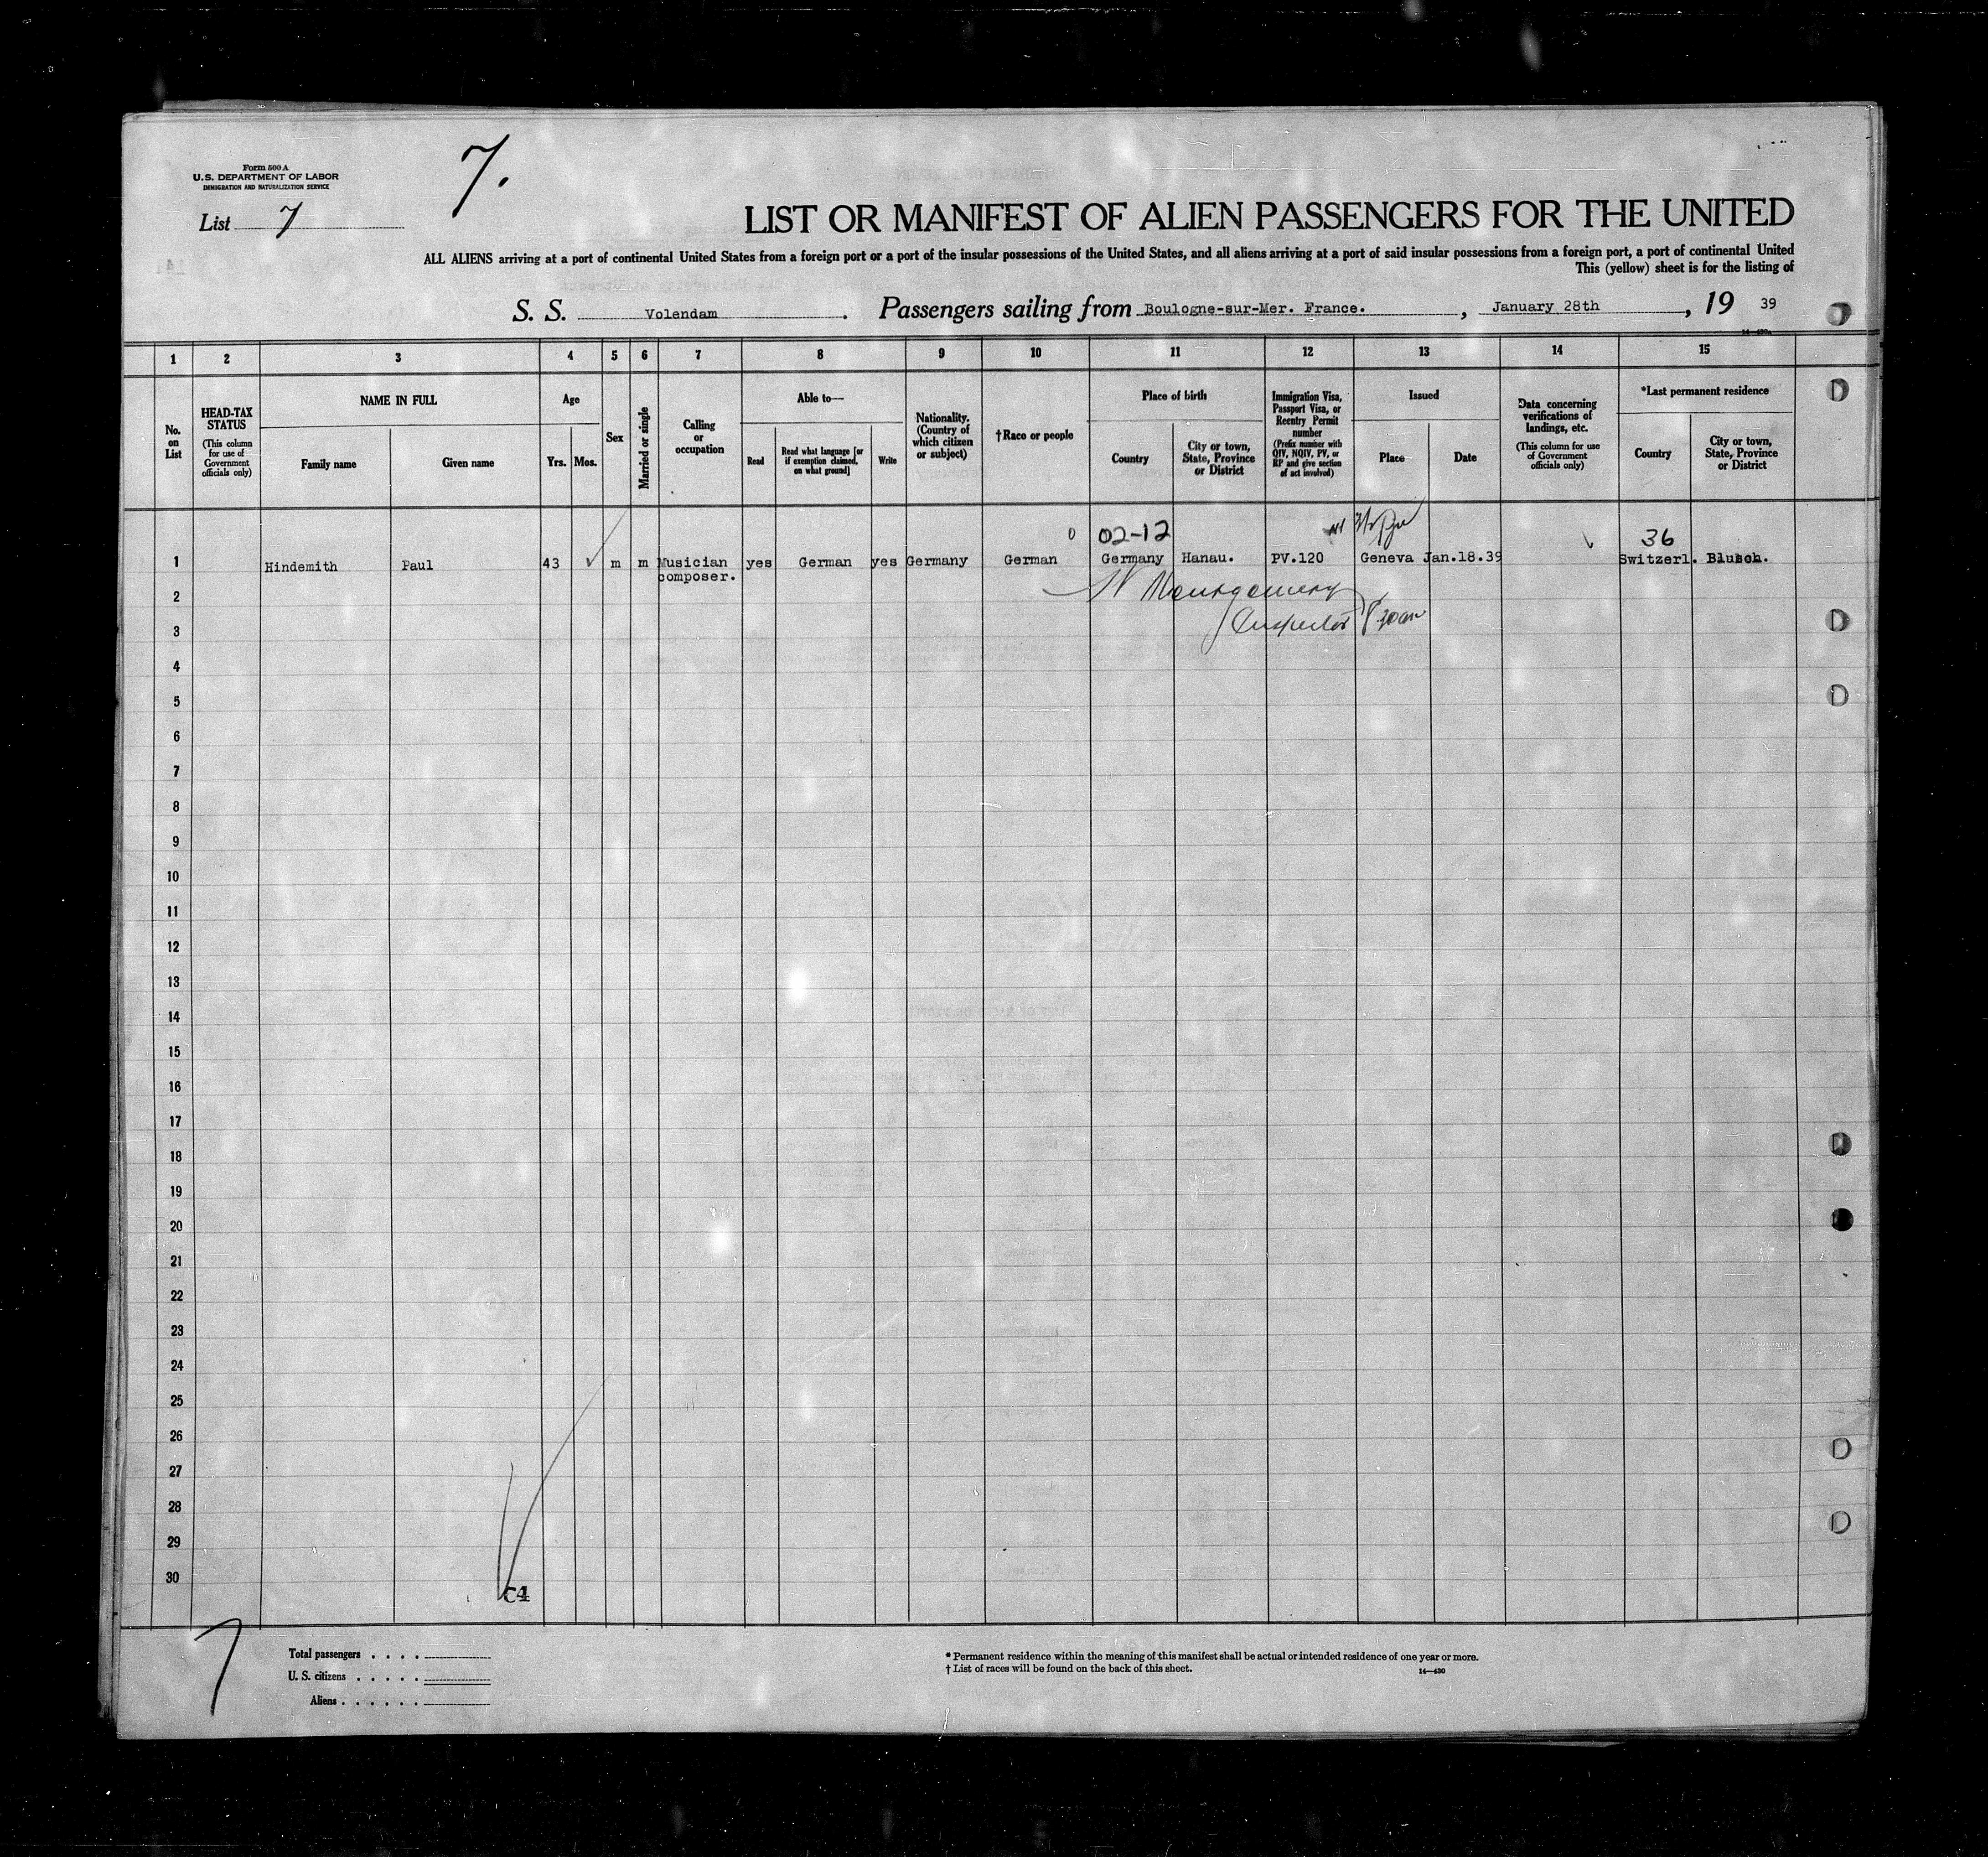 Form 500 A
U.S. DEPARTMENT OF LABOR
IMMIGRATION AND NATURALIZATION SERVICE
7.
List 7
LIST OR MANIFEST OF ALIEN PASSENGERS FOR THE UNITED
ALL ALIENS arriving at a port of continental United States from a foreign port or a port of the insular possessions of the United States, and all aliens arriving at a port of said insular possessions from a foreign port, a port of continental United
This (yellow) sheet is for the listing of
S. S. Volendam. Passengers sailing from Boulogne-sur-Mer. France., January 28th, 19 39
1 2 3 4 5 6 7 8 9 10 11 12 13 14 15
No. on List
HEAD-TAX STATUS
(This column for use of Government officials only)
NAME IN FULL
Family name
Given name
Age
Yrs.
Mos.
Sex
Married or single
Calling or occupation
Able to—
Read
Read what language [or if exemption claimed, on what ground]
Write
Nationality. (Country of which citizen or subject)
†Race or people
Place of birth
Country
City or town, State, Province or District
Immigration Visa, Passport Visa, or Reentry Permit number
(Prefix number with QIV, NQIV, PV, or RP and give section of act involved)
Issued
Place
Date
Data concerning verifications of landings, etc.
(This column for use of Government officials only)
*Last permanent residence
Country
City or town, State, Province or District
02-12
36
1 Hindemith Paul 43 m m Musician composer. yes German yes Germany German Germany Hanau. PV.120 Geneva Jan.18.39 Switzerl. Blusch.
Montgomery
Inspector
2
3
4
5
6
7
8
9
10
11
12
13
14
15
16
17
18
19
20
21
22
23
24
25
26
27
28
29
30
C4
7
Total passengers . . . .
U. S. citizens . . . . .
Aliens . . . . . .
* Permanent residence within the meaning of this manifest shall be actual or intended residence of one year or more.
† List of races will be found on the back of this sheet.
14—430